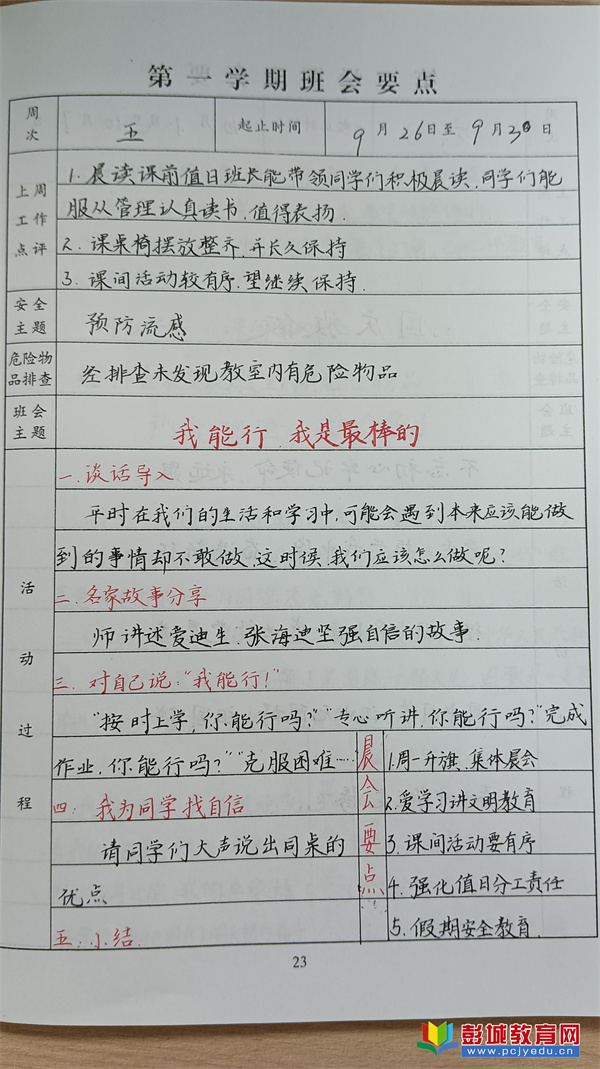 第一学期班会要点
周次 五 起止时间 9月26日至9月30日
上周工作点评
1. 晨读课前值日班长能带领同学们积极晨读,同学们能
服从管理认真读书,值得表扬.
2. 课桌椅摆放整齐,并长久保持
3. 课间活动较有序,望继续保持.
安全主题 预防流感
危险物品排查 经排查未发现教室内有危险物品
班会主题 我能行 我是最棒的
活动过程
一.谈话导入
平时在我们的生活和学习中,可能会遇到本来应该能做
到的事情却不敢做,这时候,我们应该怎么做呢?
二.名家故事分享
师讲述爱迪生、张海迪坚强自信的故事.
三.对自己说:"我能行!"
"按时上学,你能行吗?""专心听讲,你能行吗?"完成
作业,你能行吗?""克服困难……
四:我为同学找自信
请同学们大声说出同桌的
优点
五.小结.
晨会要点
1.周一升旗,集体晨会
2.爱学习讲文明教育
3.课间活动要有序
4.强化值日分工责任
5.假期安全教育.
23
彭城教育网
www.pcjyedu.cn